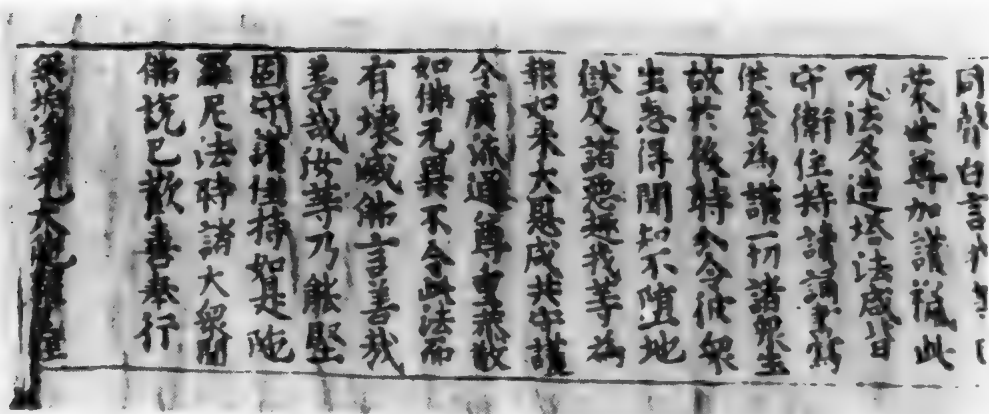 同聲白言
蒙世尊加護授此
咒法及造塔法咸皆
守衛住持讀誦書寫
供養為護一切諸眾生
故於後時分令彼眾
生悉得聞知不墮地
獄及諸惡趣我等為
報如來大恩咸共守護
令廣流通尊重恭敬
如佛无異不令此法而
有壞滅佛言善哉
善哉汝等乃能堅
固守護住持如是陁
羅尼法時諸大眾聞
佛說已歡喜奉行
無垢淨光大陁羅